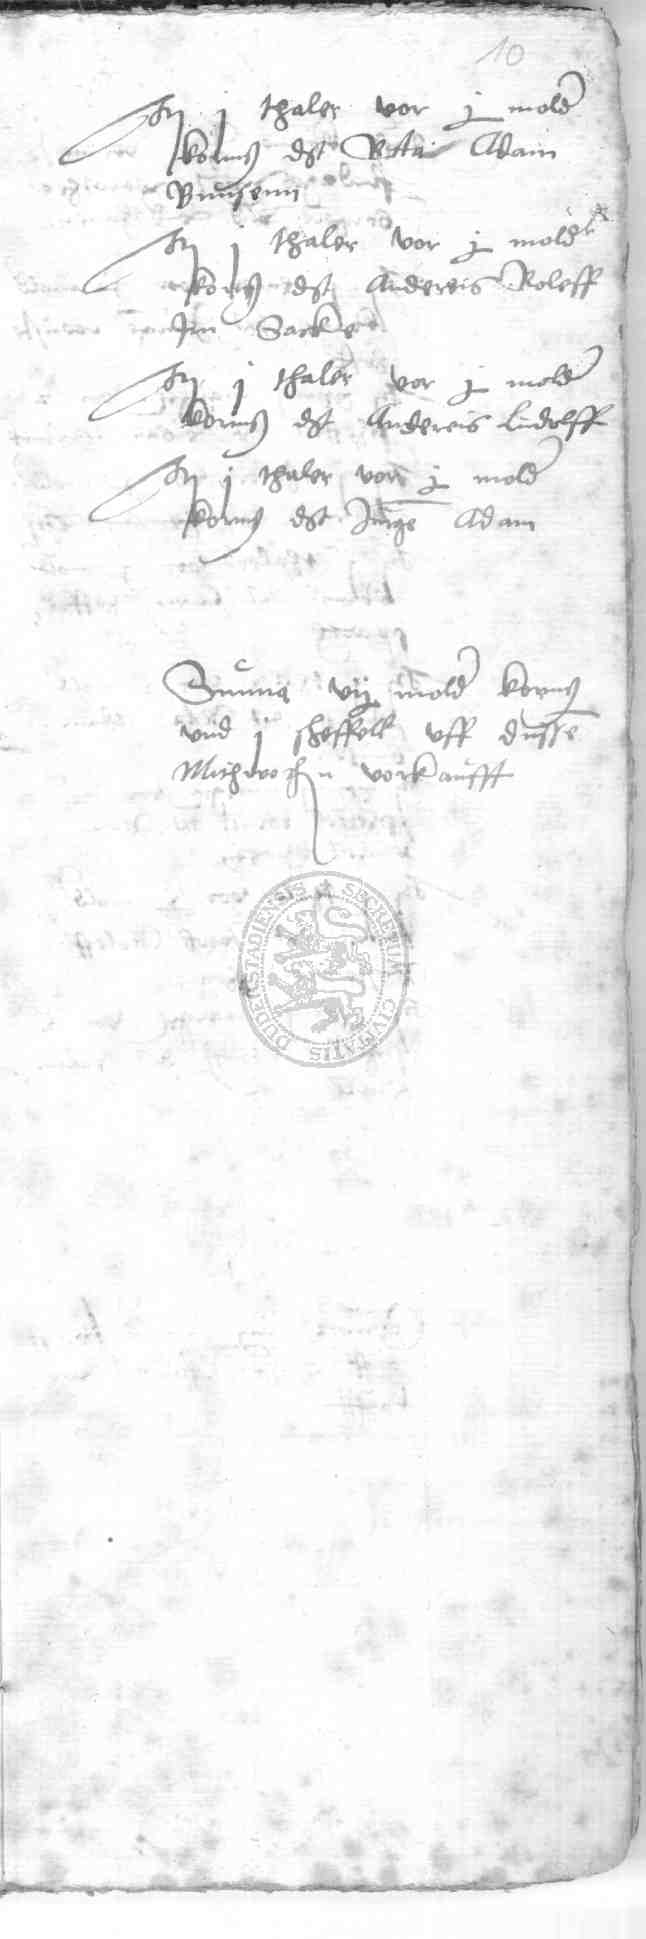 10
It j thaler vor j mold
korns dt Adam
Bunsenn
It j thaler vor j mold
korns dt Andereis Roleff
Im Sacke
It j thaler vor j mold
korns dt Andereis Ludolff
It j thaler vor j mold
korns dt Junge Adam
Suma vij mold korns
vnd j sheffell vff dussen
Mithwochn vorkaufft
SECRETUM CIVITATIS DUDERSTADIENSIS